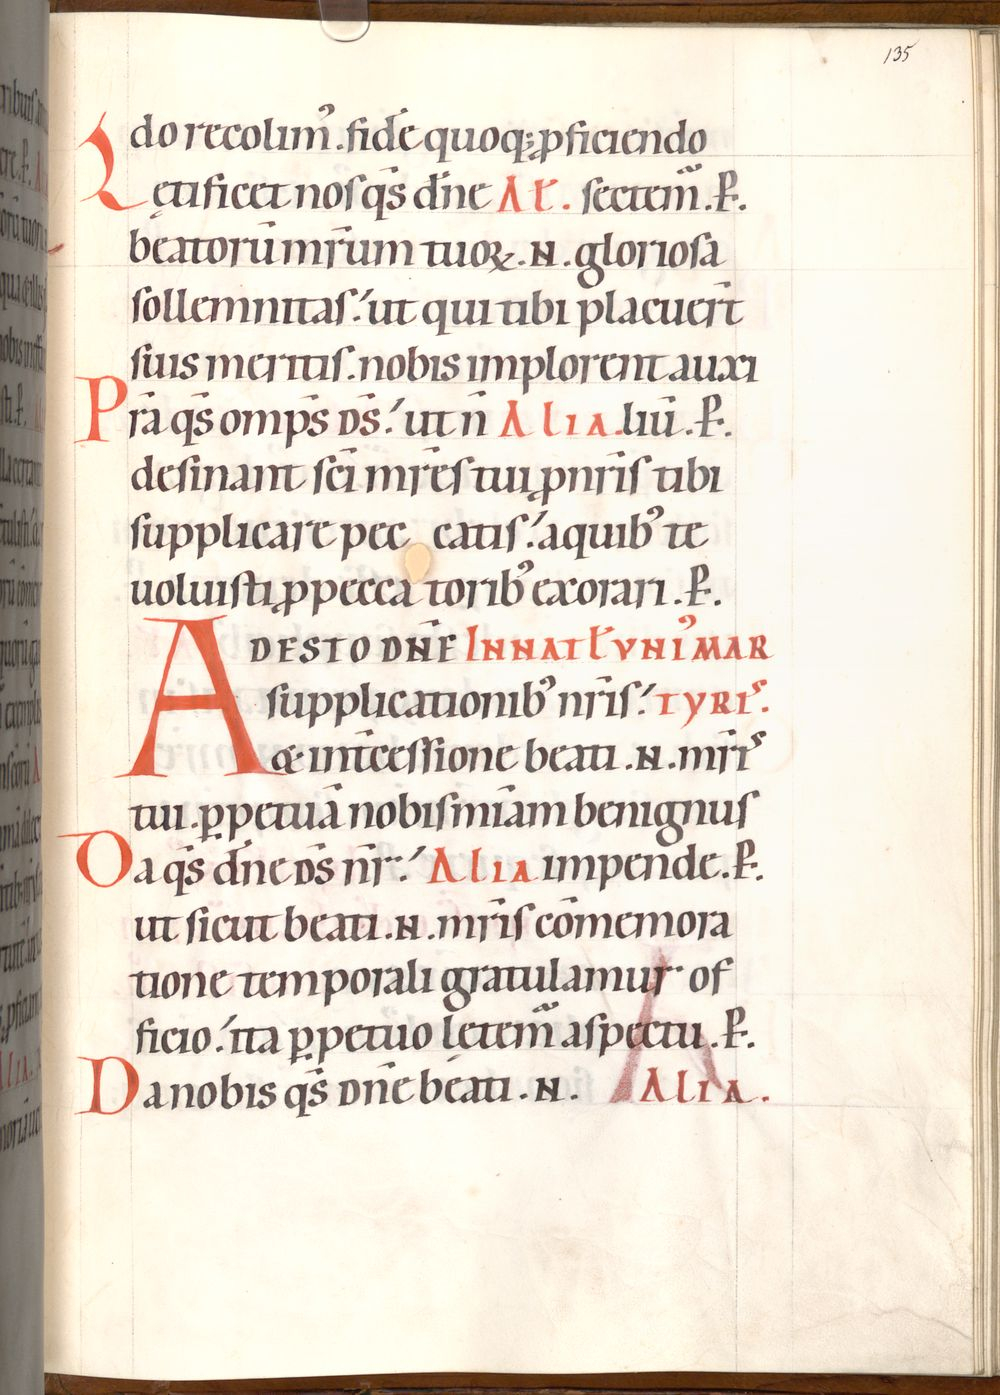 135
do recolim᾽. fidē quoq; ꝓficiendo
Lętificet nos q̄s dn̄e Aƚ. sectem̃. ꝑ.
beatorū mr̄um tuoꝝ .N. gloriosa
sollemnitas:́ ut qui tibi placuer̄t
suis meritis. nobis implorent auxi
Prā q̄s omp̄s d̄s:́ ut n̄ Alia. liū. ꝑ.
desinant sc̄i mr̄es tui ꝓ nr̄is tibi
supplicare peccatis:́ a quib᾽ te
uoluisti ꝓ peccatorib᾽ exorari. ꝑ.
ADESTO DN̄E IN NATƚ VNI᾽ MAR
supplicationib᾽ nr̄is:́ TYRIˢ.
& int̄cessione beati .N. mr̄iˢ
tui. ꝑpetuā nobis mīam benignus
Da q̄s dn̄e d̄s nr̄:́ Alia impende. ꝑ.
ut sicut beati .N. mr̄is cōmemora
tione temporali gratulamur of
ficio:́ ita ꝑpetuo lętem̃ aspectu. ꝑ.
Da nobis q̄s dn̄e beati .N. Alia.